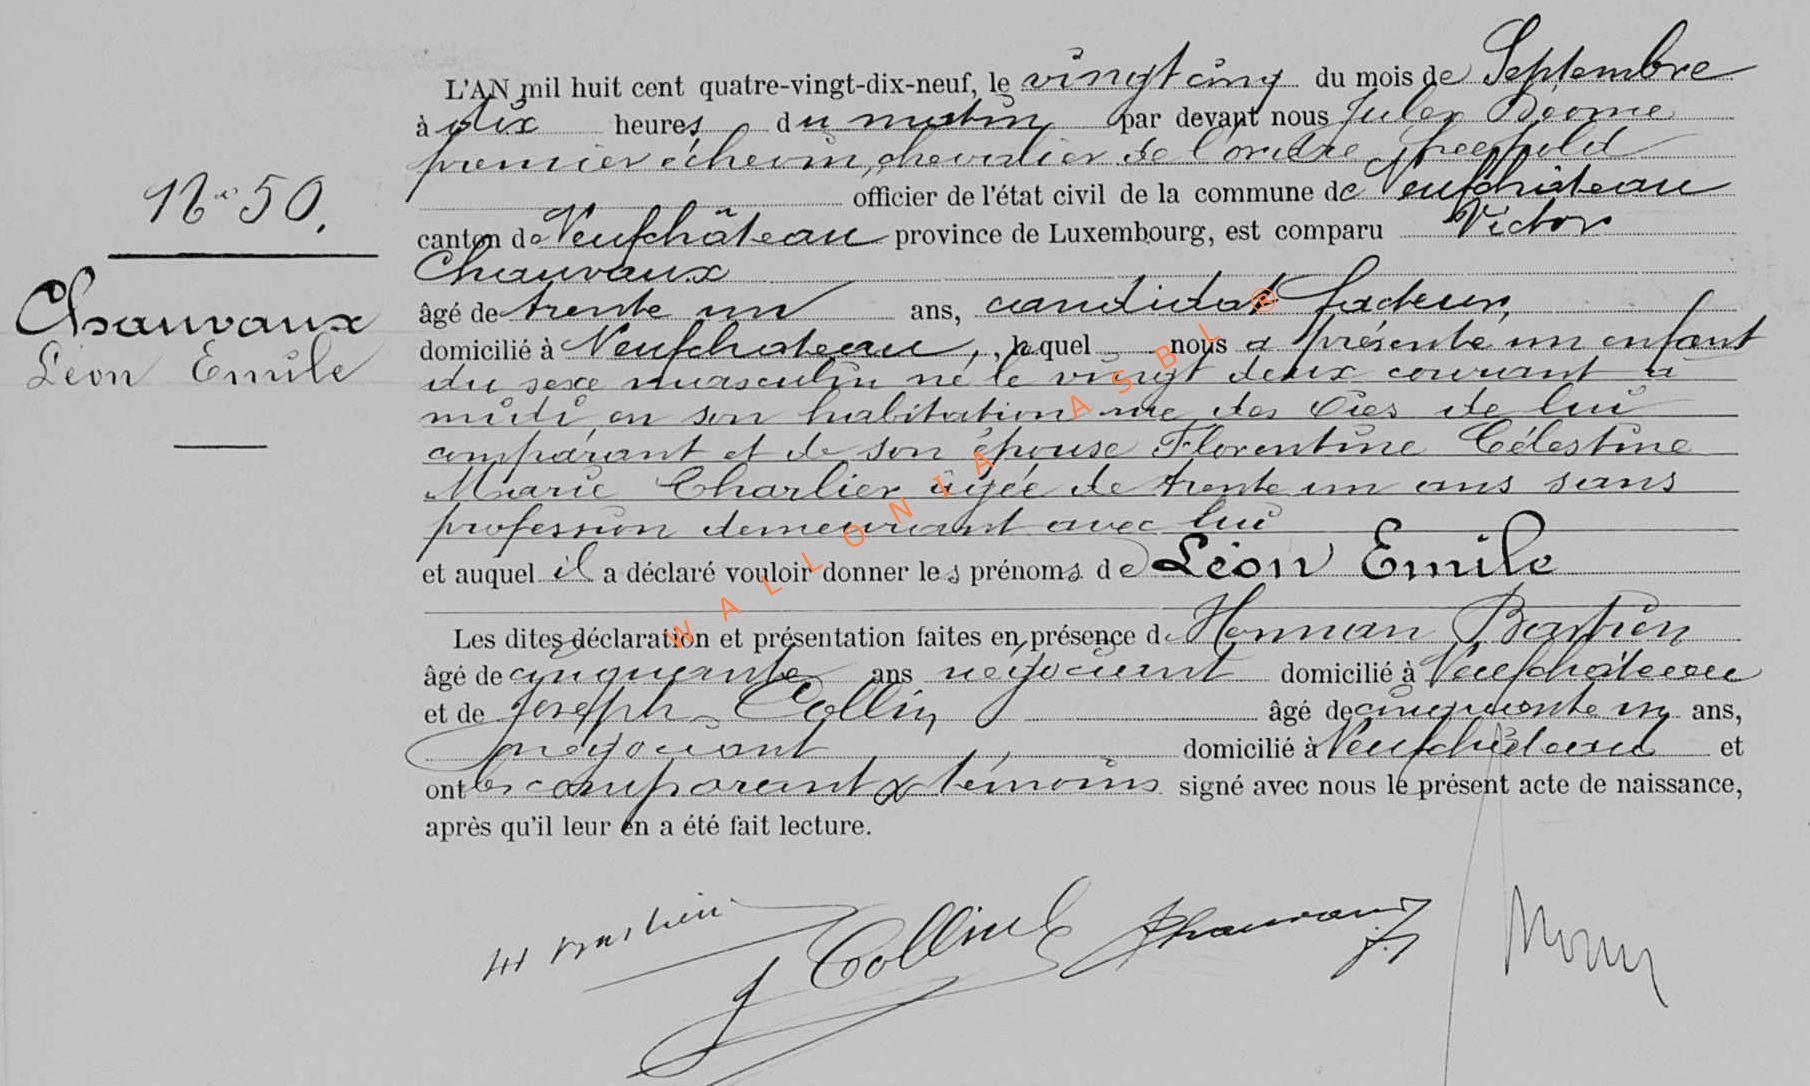 L'AN mil huit cent quatre-vingt-dix-neuf, le vingt cinq du mois de Septembre
à dix heures du matin par devant nous Jules
premier échevin, chevalier de l'ordre Léopold
officier de l'état civil de la commune de Neufchâteau
canton de Neufchâteau province de Luxembourg, est comparu Victor
Chauvaux
âgé de trente un ans, candidat facteur,
domicilié à Neufchateau, lequel nous a présenté un enfant
du sexe masculin né le vingt deux courant à
midi, en son habitation rue des Oies de lui
comparant et de son épouse Florentine Célestine
Marie Charlier agée de trente un ans sans
profession demeurant avec lui
et auquel il a déclaré vouloir donner les prénoms de Léon Emile
Les dites déclaration et présentation faites en présence de Herman Bastien
âgé de cinquante ans négociant domicilié à Neufchâteau
et de Joseph Collin âgé de cinquante un ans,
négociant domicilié à Neufchâteau et
ont les comparant & témoins signé avec nous le présent acte de naissance,
après qu'il leur en a été fait lecture.
N° 50.
Chauvaux
Léon Emile
H Bastien
J Collin
Chauvaux
WALLONIA ASBL ®